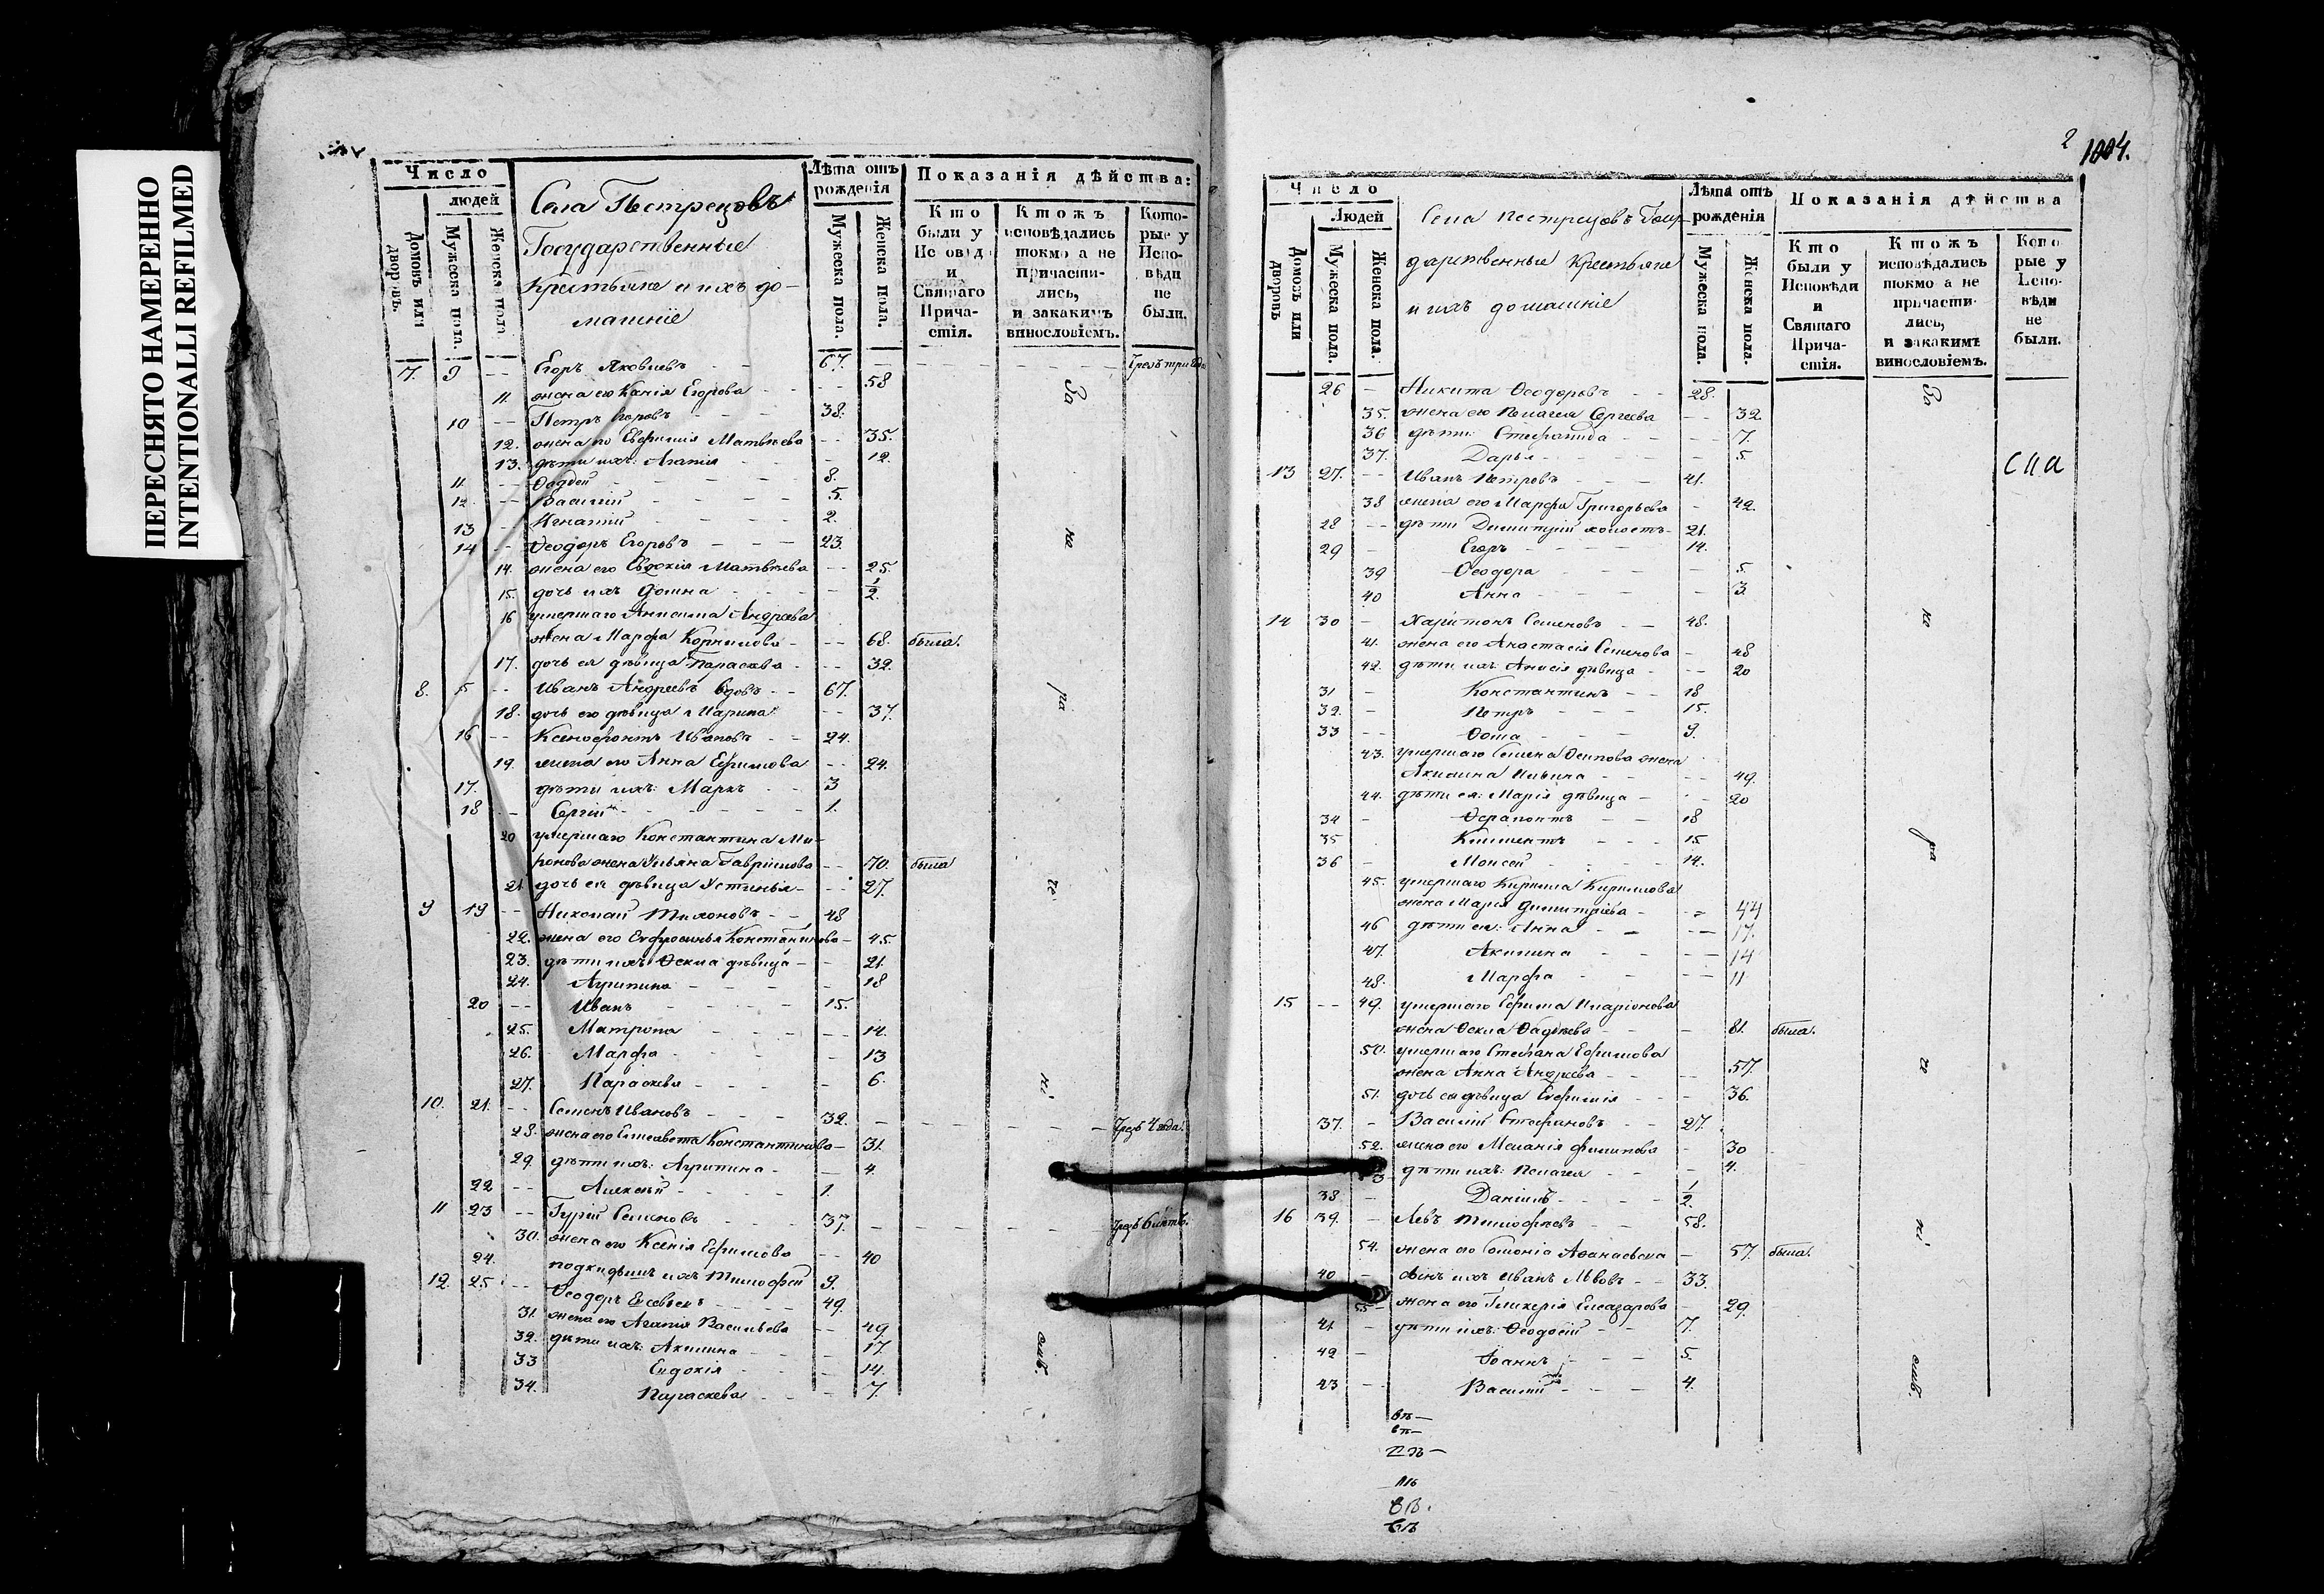 ПЕРЕСНЯТО НАМЕРЕННО
INTENTIONALLI REFILMED
Число
людей
Домовъ или дворовъ.
Мужеска пола.
Женска пола
Села Пестрецовъ
Государственные
Крестьяне и ихъ до-
машніе
Лѣта отъ рожденія
Мужеска пола.
Женска пола.
Показанія дѣйства:
Кто были у Исповѣди и Святаго Прича-стія.
Ктожъ исповѣдались токмо а не причасти-лись, и закакимъ винословіемъ.
Кото-рые у Испо-вѣди не были.
7. 9 -- Егоръ Яковлевъ 67.
11. жена его Егорова 58
10 -- Петръ Егоровъ 38.
12. жена его Евфимія Матвѣева 35.
13. дѣти ихъ: Агапія 12.
11 -- Фаддей 8.
12 -- Василій 5.
13 - Игнатій 2.
14 -- Ѳеодоръ Егоровъ 23.
14. жена его Евдокія Матвѣева 25.
15. дочь ихъ Домна 1/2.
16 умершаго Анисима Андреева
жена Марфа Корнилова 68. была.
17. дочь ея дѣвица Параскева 32.
8. 15 -- Иванъ Андреевъ вдовъ 67.
18. дочь его дѣвица Марина 37.
16 -- Ксенофонтъ Ивановъ 24.
19. жена его Анна Ефимова 24.
17. дѣти ихъ: Маркъ 3
18 - Сергій 1.
20 умершаго Константина Ми-
ронова жена Ульяна Гаврилова 70. была
21 дочь ея дѣвица Устинья 27.
9 19 -- Николай Тихоновъ 48
22. жена его Евфросинья Константинова 45.
23. дѣти ихъ: Ѳекла дѣвица 21.
24. Агрипина 18
20 -- Иванъ 15.
25. Матрона 14.
26. Марфа 13
27. Параскева 6.
10. 21. -- Семенъ Ивановъ 32.
28. жена его Елисавета Константинова 31.
29. дѣти ихъ: Агрипина 4.
22 -- Алексѣй 1.
11 23 -- Гурій Семеновъ 37.
30. жена его Ксенія Ефимова 40
24. подкидышъ ихъ Тимофей 9.
12. 25. -- Ѳеодоръ 49.
31. жена его Агапія Васильева 49.
32. дѣти ихъ: Акилина 17.
33 Евдокія 14.
34. Параскева 7.
2
1004.
Число
Людей
Домовъ или дворовъ
Мужеска пола.
Женска пола.
Села Пестрецовъ Госу-
дарственные Крестьяне
и ихъ домашніе
Лѣта отъ рожденія
Мужеска пола.
Женска пола.
Показанія дѣйства
Кто были у Исповѣди и Святаго Прича-стія.
Ктожъ исповѣдались токмо а не причасти-лись, и закакимъ винословіемъ.
Кото-рые у Испо-вѣди не были.
26 - Никита Ѳеодоровъ 28.
35. жена его Пелагея Сергеева 32
36 дѣти: Стефанида 7.
37. Дарья 5.
13 27. -- Иванъ Петровъ 41.
38 жена его Марфа Григорьева 42.
28 -- дѣти Димитрій холостъ 21.
29 - Егоръ 14.
39 Ѳеодора 5.
40 Анна 3.
14 30 - Харитонъ Семеновъ 48.
41. жена его Анастасія Семенова 48
42. дѣти ихъ: Анисія дѣвица 20
31 - Константинъ 18
32. - Петръ 15.
33 -- Ѳома 9.
43. умершаго Семена Осипова жена
Акилина Ильина 49.
44. дѣти ея: Марія дѣвица 20
34 - Ѳерапонтъ 18
35 Климентъ 15.
36 - Моисей 14.
45. умершаго Кирилла Кирилова
жена Марія Димитріева 44
46 дѣти ея: Анна 17.
47. Акилина 14
48. Марфа 11
15 -- 49. умершаго Ефима Иларіонова
жена Ѳекла Фадѣева 81. была.
50. умершаго Стефана Ефимова
жена Анна Андреева 57.
51. дочь ея дѣвица Евфимія 36.
37. - Василій Стефановъ 27.
52. жена его Меланія Филипова 30
дѣти ихъ: Пелагея 4.
38 - Даніилъ 1/2.
16 39. - Левъ Тимофѣевъ 58.
54. жена его Соломонія 57. была.
40 - сынъ ихъ Иванъ Львовъ 33.
55 - жена его Гликерія Елеазарова 29.
41 - дѣти ихъ: Ѳеодосій 7.
42 - Іоаннъ 5.
43 -- Василій 4.